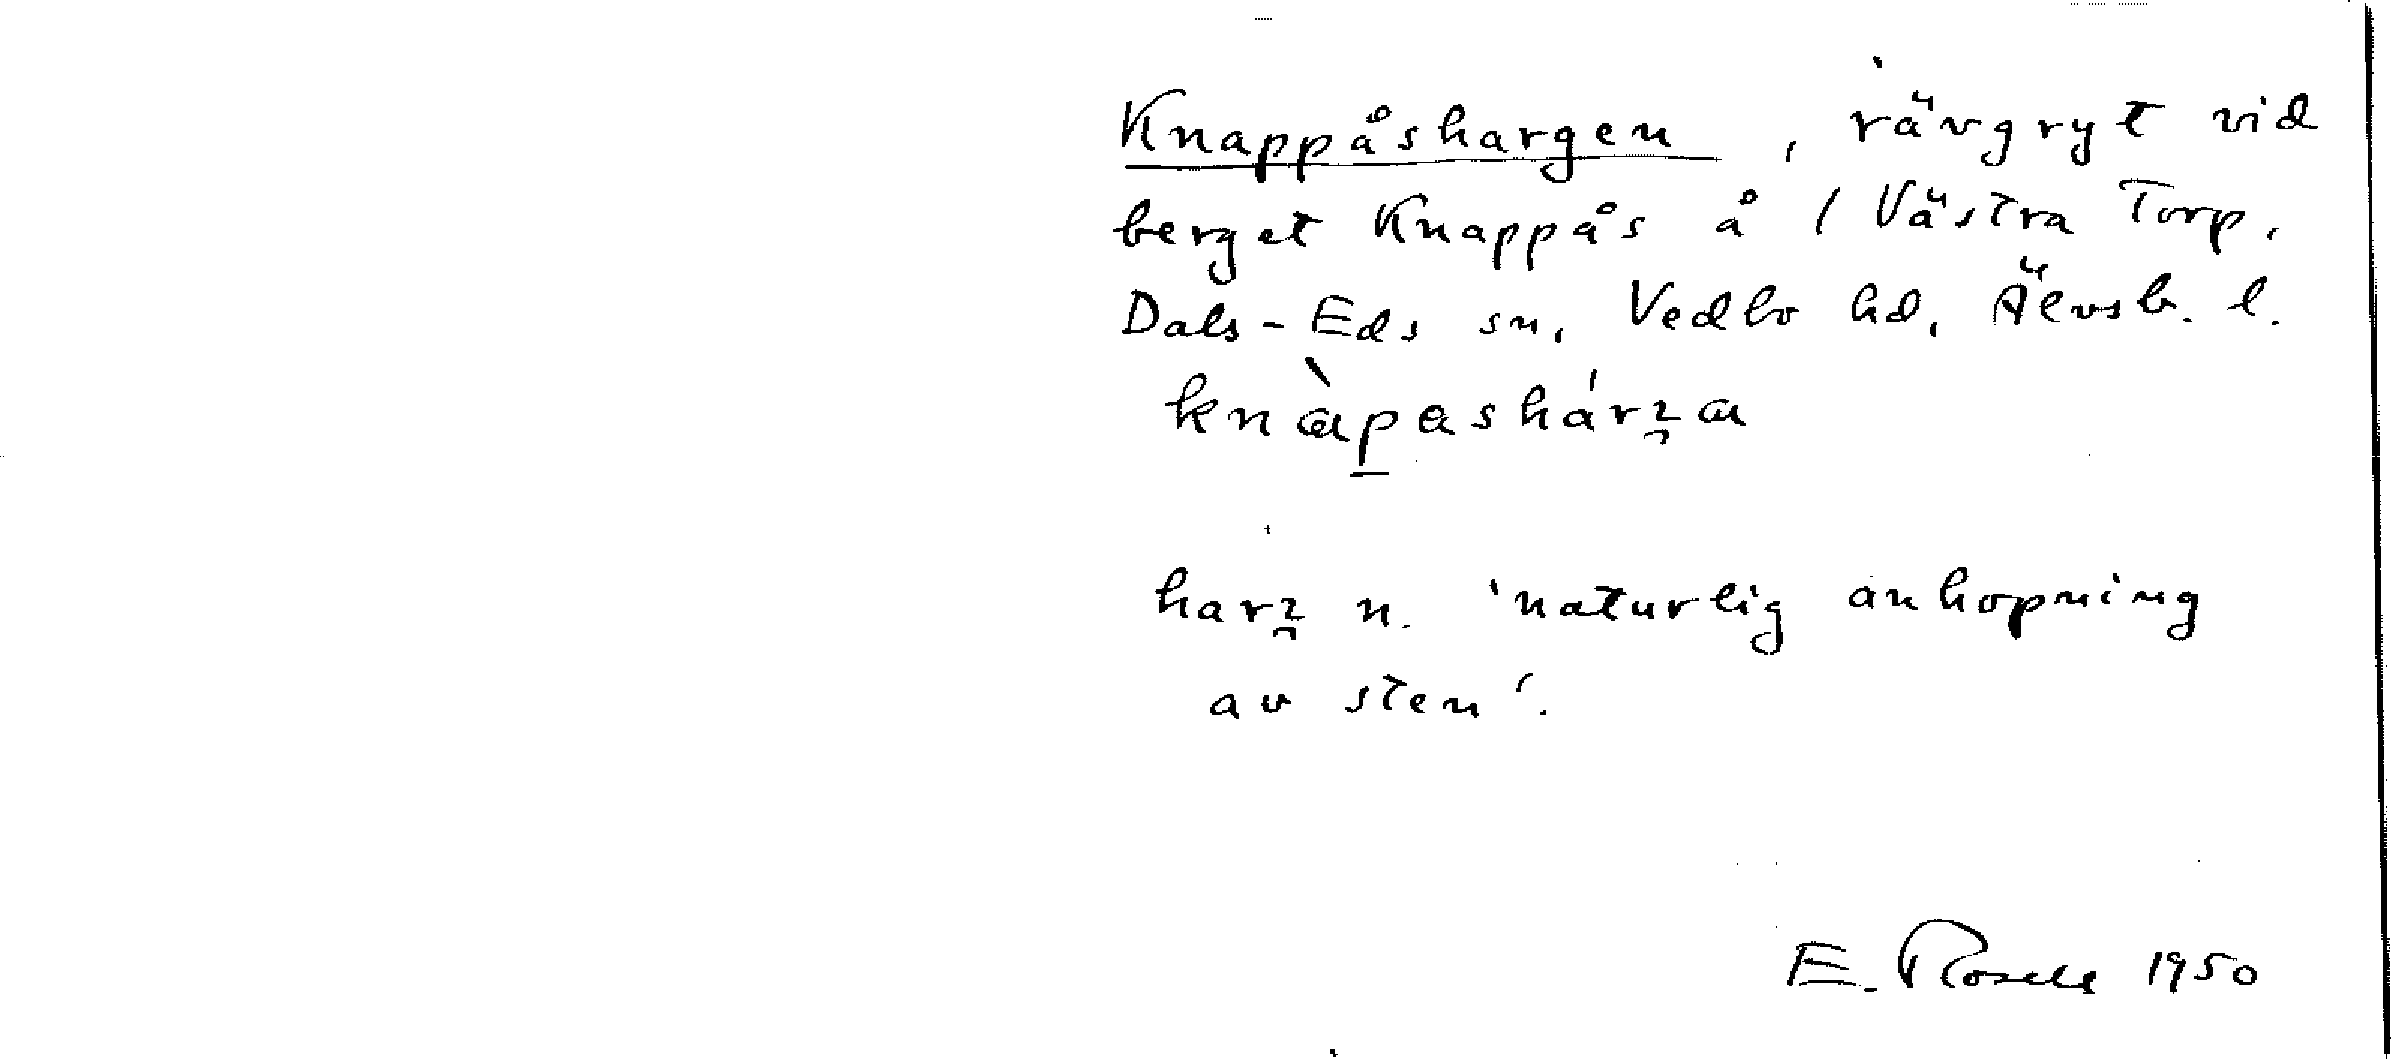 Knappåshargen, rävgryt vid
berget Knappås å / Västra Torp,
Dals-Eds sn, Vedbo hd, Älvsb. l.
knàpashárʒa
harʒ n. 'naturlig anhopning
av sten'.
E. Rosell 1950